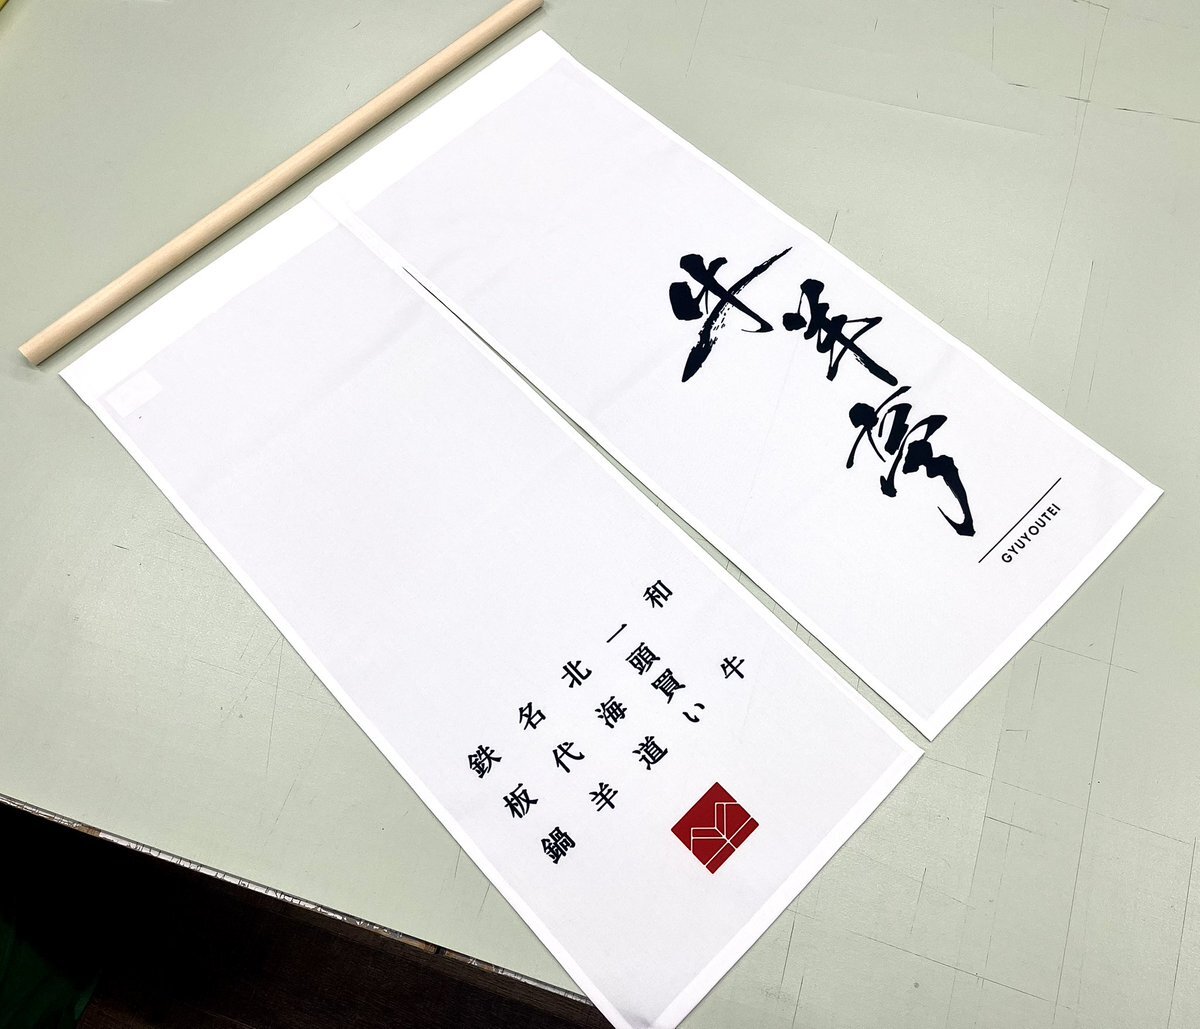 牛羊亭
GYUYOUTEI
和牛
一頭買い
北海道
名代羊
鉄板鍋